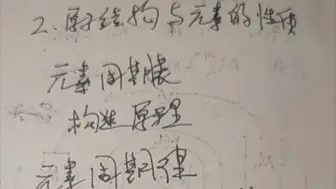 2. 原子结构与元素的性质
元素周期表
构造原理
元素周期律